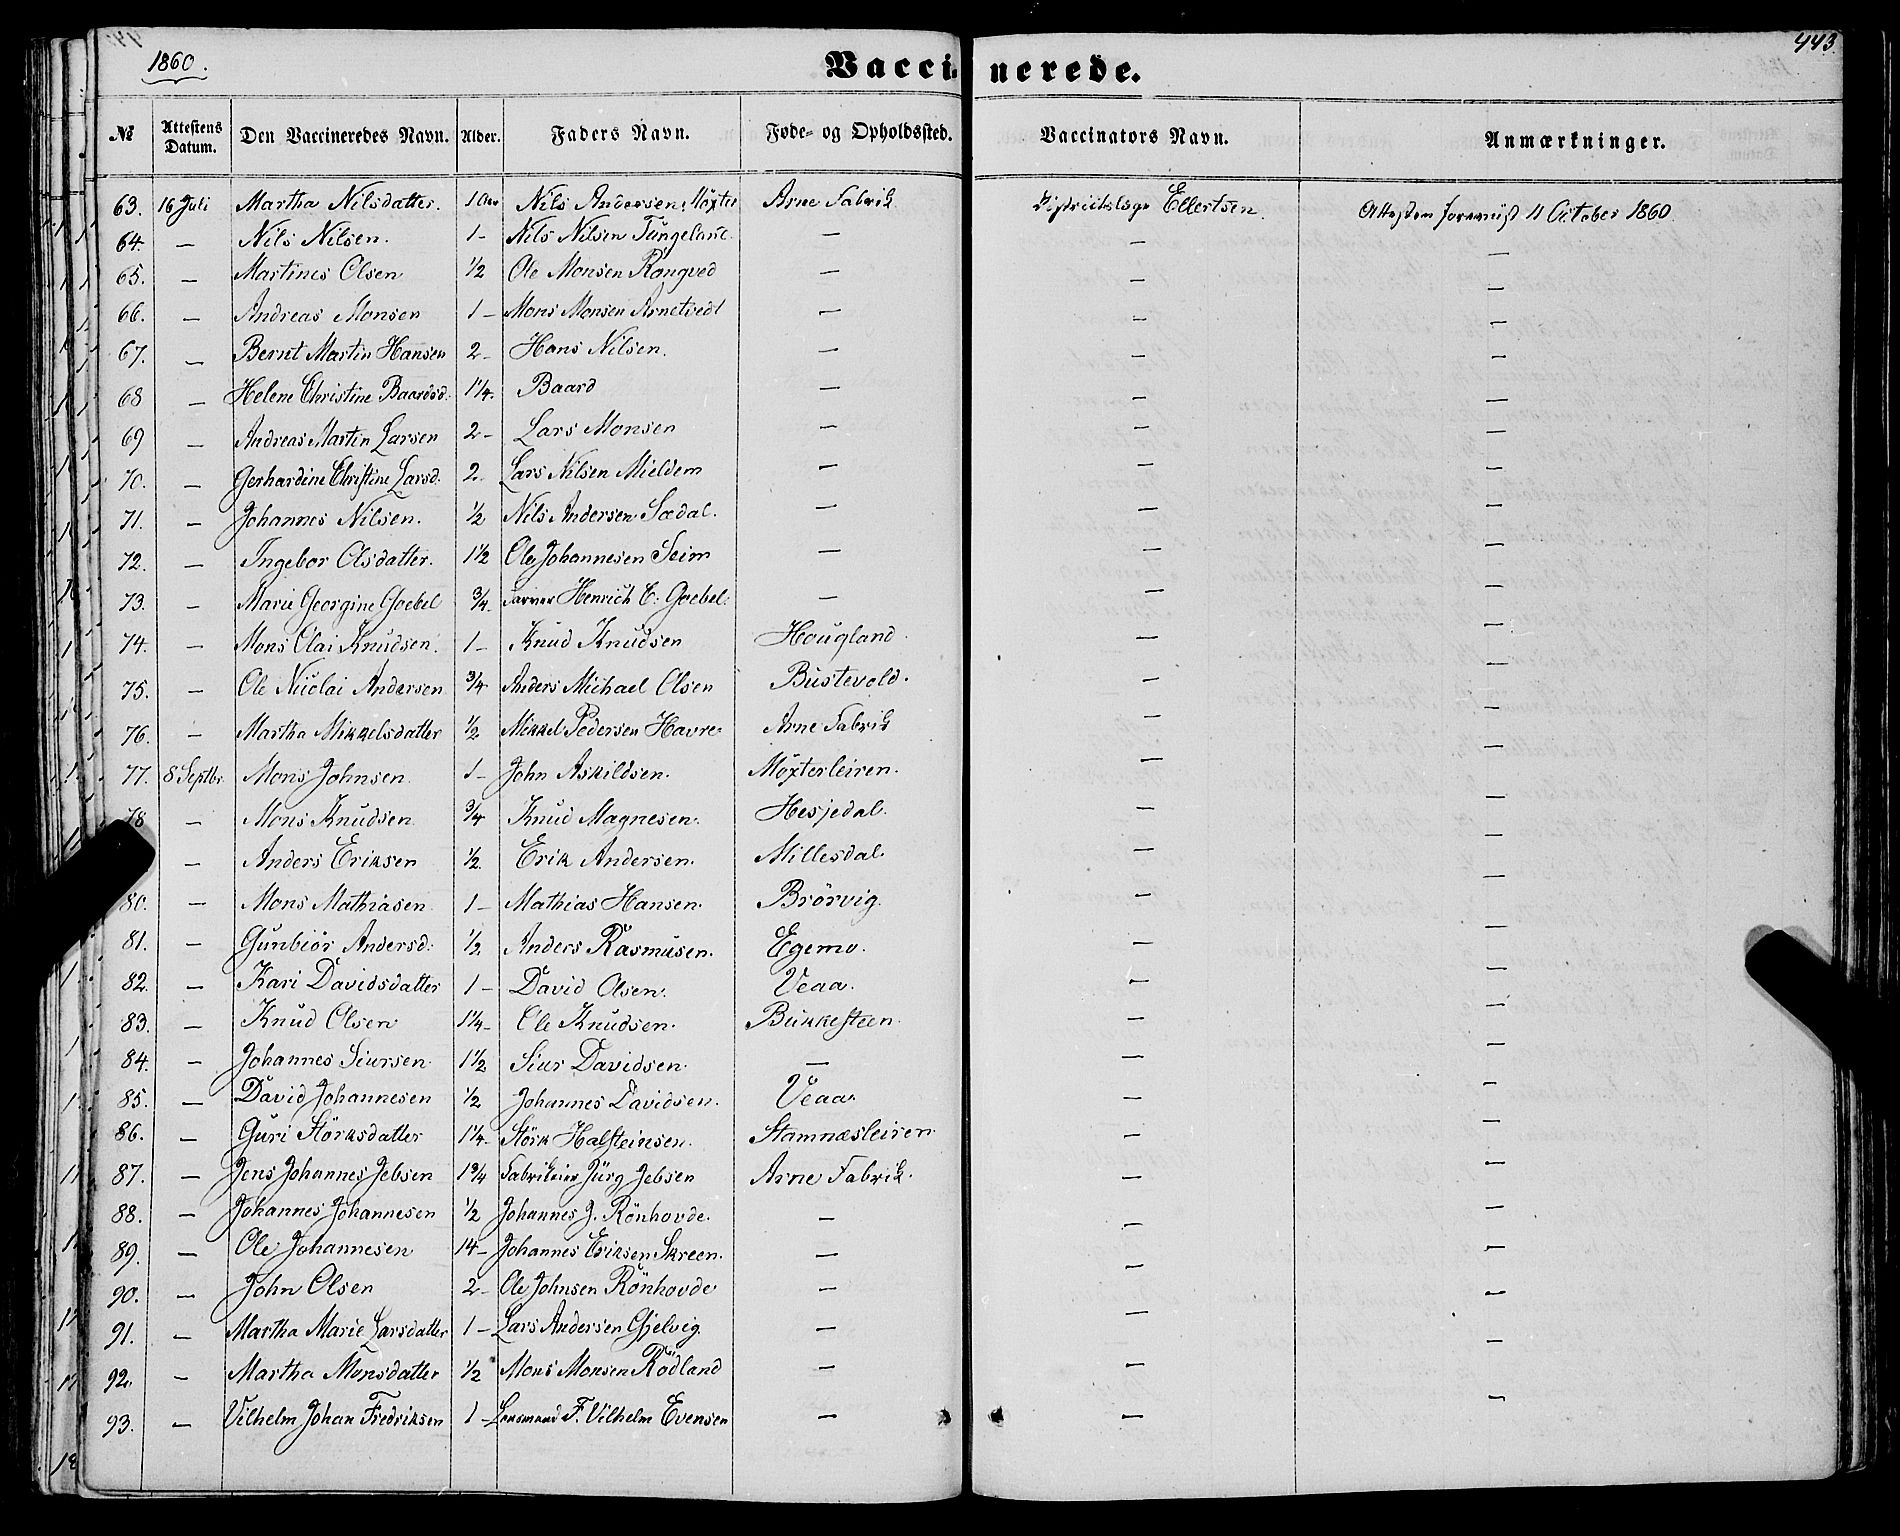 443
1860.
Vaccinerede.
№ Attestens Datum. Den Vaccineredes Navn. Alder. Faders Navn. Føde- og Opholdssted. Vaccinators Navn. Anmærkninger.
63. 16 Juli Martha Nilsdatter. 1 Nils Andersen Møxter Arne Fabrik Ellertsen. 11 October 1860
64. — Nils Nilsen. 1 – Nils Nilsen Tungeland — — —
65. — Martines Olsen 1/2 Ole Monsen Rongved — — —
66. — Andreas Monsen 1 – Mons Monsen Arnetvedt — — —
67. — Bernt Martin Hansen 2 – Hans Nilsen. — — —
68 — Helene Christine Baardsd. 1 1/4. Baard — — —
69 — Andreas Martin Larsen 2 – Lars Monsen — — —
70. — Gerhardine Christine Larsd. 2. Lars Nilsen Mieldem — — —
71. — Johannes Nilsen. 1/2 Nils Andersen Sædal. — — —
72. — Ingebor Olsdatter. 1 1/2 Ole Johannesen Seim — — —
73. — Marie Georgine Goebel 3/4. Farver Henrich C. Goebel. — — —
74. — Mons Olai Knudsen. 1 – Knud Knudsen Hougland. — —
75. — Ole Nicolai Andersen 3/4 Anders Michael Olsen Bustevold. — —
76. — Martha Mikkelsdatter 1/2 Mikkel Pedersen Havre Arne Fabrik — —
77. 8 Septbr Mons Johnsen 1 – John Askildsen. Møxterleiren. — —
78 — Mons Knudsen 3/4 Knud Magnesen. Hesjedal. — —
— Anders Eriksen 1/2. Erik Andersen. Millesdal. — —
80. — Mons Mathiasen 1 – Mathias Hansen. Brörvig. — —
81. — Gunbiör Andersd. 1/2 Anders Rasmusen. Egemo. — —
82. — Kari Davidsdatter 1 – David Olsen. Veaa. — —
83. — Knud Olsen 1 1/4 – Ole Knudsen. Bukkesteen. — —
84. — Johannes Siursen 1 1/2 Siur Davidsen. — — —
85. — David Johannesen 1/2 Johannes Davidsen. Veaa. — —
86. — Guri Störksdatter 1 1/4. Störk Halsteinsen. Stamnæsleiren. — —
87. — Jens Johannes Jebsen 1 3/4 Fabrikeier Jürg Jebsen Arne Fabrik. — —
88. — Johannes Johannesen 1/2 Johannes J. Rönhovde. — — —
89. — Ole Johannesen 14 – Johannes Eriksen Skreen. — — —
90. — John Olsen 2 – Ole Johnsen Rönhovde — — —
91. — Martha Marie Larsdatter 1 – Lars Andersen Gjelvig. — — —
92. — Martha Monsdatter 1/2 Mons Monsen Rödland — — —
93. — Vilhelm Johan Fredriksen 1 – Lensmand F. Vilhelm Evensen — — —